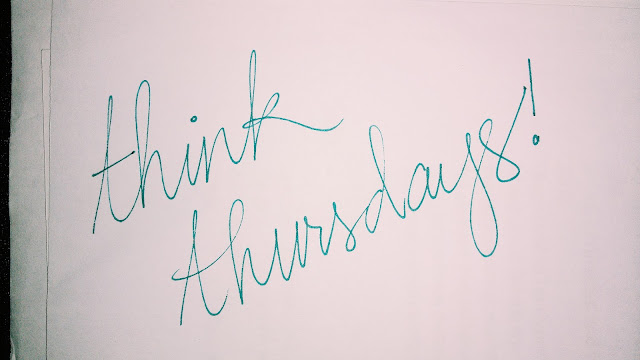 think
thursdays!